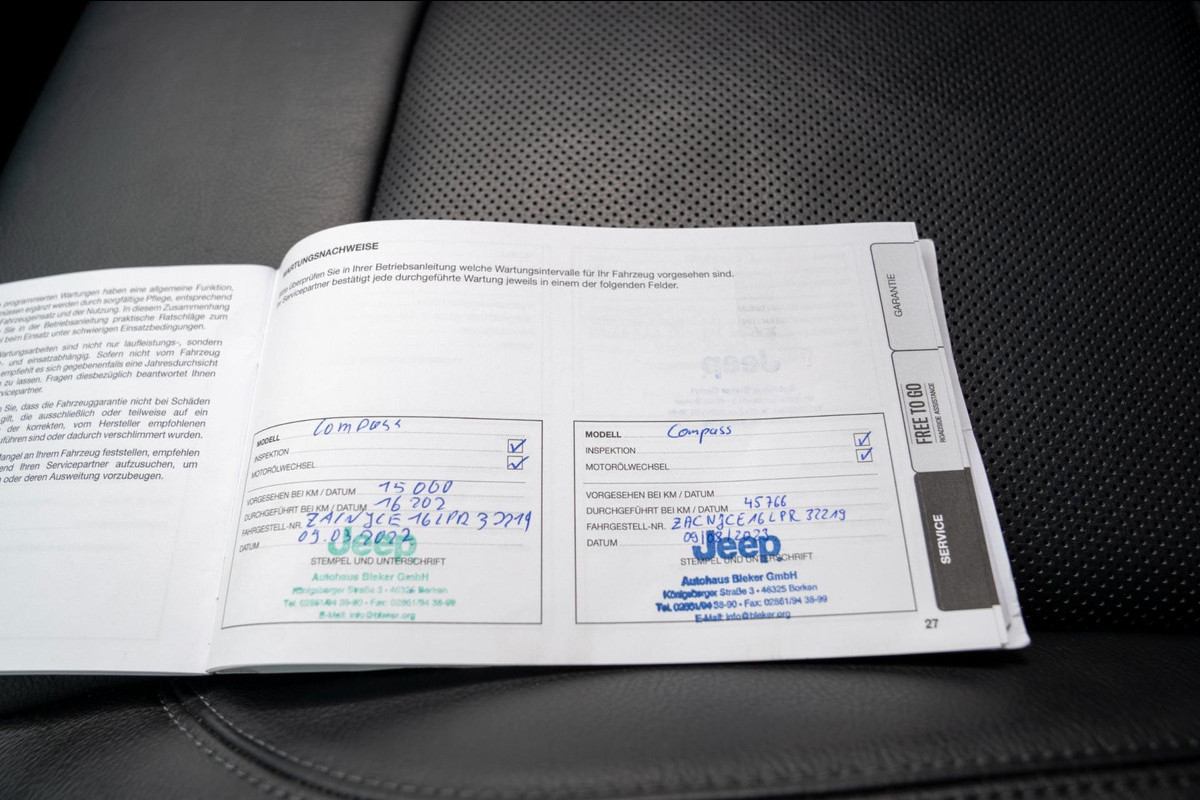 programmierten Wartungen haben eine allgemeine Funktion,
müssen ergänzt werden durch sorgfältige Pflege, entsprechend
Fahrzeugeinsatz und der Nutzung. In diesem Zusammenhang
Sie in der Betriebsanleitung praktische Ratschläge zum
beim Einsatz unter schwierigen Einsatzbedingungen.
Wartungsarbeiten sind nicht nur laufleistungs-, sondern
- und einsatzabhängig. Sofern nicht vom Fahrzeug
empfiehlt es sich gegebenenfalls eine Jahresdurchsicht
zu lassen. Fragen diesbezüglich beantwortet Ihnen
Sie, dass die Fahrzeuggarantie nicht bei Schäden
gilt, die ausschließlich oder teilweise auf ein
der korrekten, vom Hersteller empfohlenen
führen sind oder dadurch verschlimmert wurden.
Mangel an Ihrem Fahrzeug feststellen, empfehlen
Ihren Servicepartner aufzusuchen, um
oder deren Ausweitung vorzubeugen.
WARTUNGSNACHWEISE
überprüfen Sie in Ihrer Betriebsanleitung welche Wartungsintervalle für Ihr Fahrzeug vorgesehen sind.
Servicepartner bestätigt jede durchgeführte Wartung jeweils in einem der folgenden Felder.
MODELL Compass
INSPEKTION
MOTORÖLWECHSEL
VORGESEHEN BEI KM / DATUM 15 000
DURCHGEFÜHRT BEI KM / DATUM 16 202
FAHRGESTELL-NR. ZACNJCE16LPR32219
DATUM 09.03.2022
Jeep
STEMPEL UND UNTERSCHRIFT
Autohaus Bleker GmbH
Königsberger Straße 3 • 46325 Borken
Tel. 02861/94 38-90 • Fax: 02861/94 38-99
E-Mail: info@bleker.org
MODELL Compass
INSPEKTION
MOTORÖLWECHSEL
VORGESEHEN BEI KM / DATUM
DURCHGEFÜHRT BEI KM / DATUM 45766
FAHRGESTELL-NR. ZACNJCE16LPR32219
DATUM 09/08/2023
Jeep
STEMPEL UND UNTERSCHRIFT
Autohaus Bleker GmbH
Königsberger Straße 3 • 46325 Borken
Tel. 02861/94 38-90 • Fax: 02861/94 38-99
E-Mail: info@bleker.org
27
GARANTIE
FREE TO GO
ROADSIDE ASSISTANCE
SERVICE